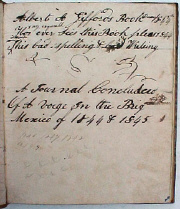 Albert A Gifford's Book 1845
Who ever Sees this Book pleas
This bad spelling & bad Writing
A Journal Concluded
of A Voige in the Brig
Mexico of 1844 & 1845